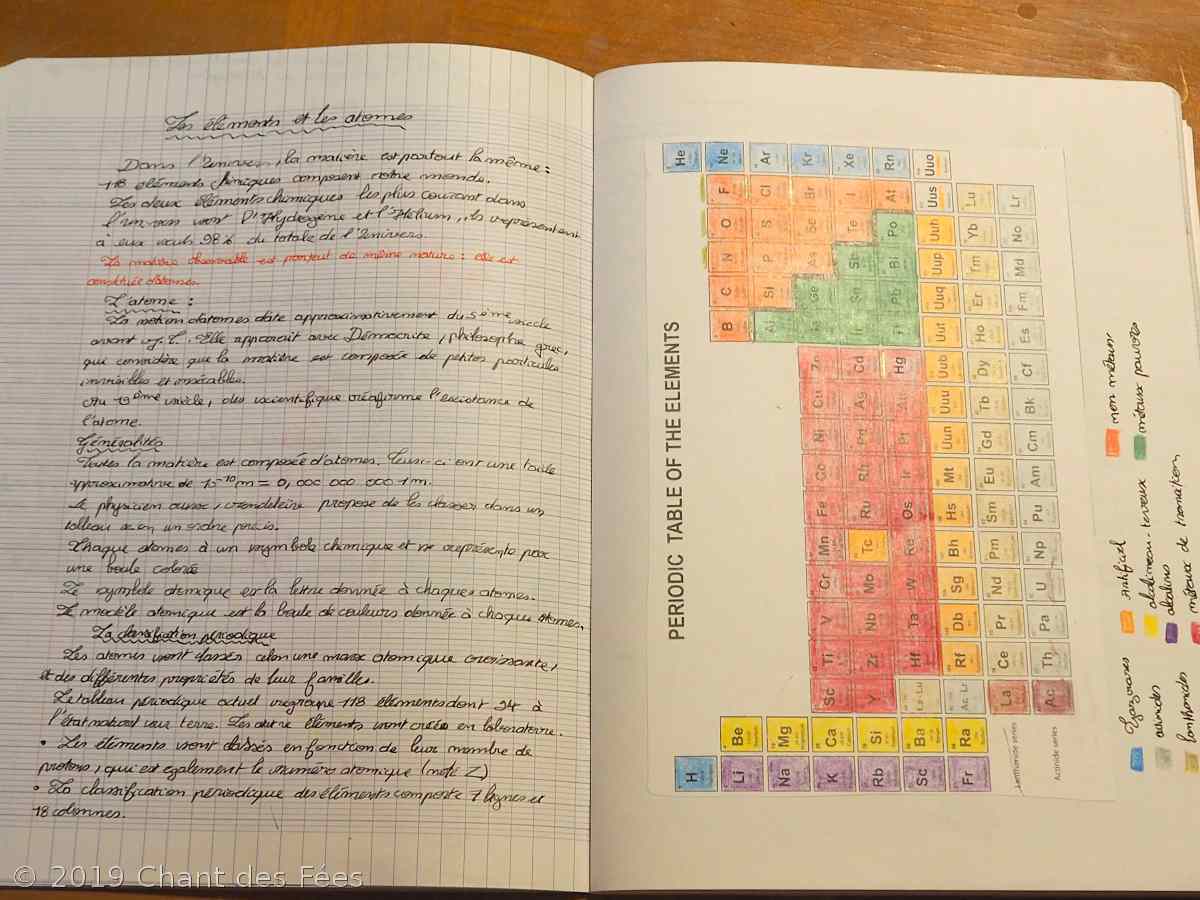 Les éléments et les atomes
Dans l'Univers, la matière est partout la même :
118 éléments chimiques composent notre monde.
Les deux éléments chimiques les plus courant dans
l'univers sont l'Hydrogène et l'Hélium, ils représentent
à eux seuls 98% du totale de l'Univers.
La matière observable est partout de même nature : elle est
constituée d'atomes.
L'atome :
La notion d'atomes date approximativement du 5ème siècle
avant J.C. Elle apparait avec Démocrite, philosophe grec,
qui considère que la matière est composée de petites particules
invisibles et insécables.
Au 19ème siècle, des scientifique réafirme l'existance de
l'atome.
Généralités
Toutes la matière est composée d'atomes. Ceux-ci ont une taille
approximative de 10-10 m = 0,000 000 000 1 m.
Le physicien russe, mendeleïve propose de les classer dans un
tableau selon un ordre précis.
Chaque atomes à un symbole chimique et se représente par
une boule colorée
Le symbole atomique est la lettre donnée à chaques atomes.
Le modèle atomique est la boule de couleurs donnée à chaque atomes.
La classification périodique
Les atomes sont classés selon une masse atomique croissante,
et des différentes propriétés de leur familles.
Le tableau périodique actuel regroupe 118 éléments dont 94 à
l'état naturel sur terre. Les autre éléments sont créés en laboratoire.
• Les éléments sont classés en fonction de leur nombre de
protons, qui est également le numéro atomique (noté Z)
• La classification périodique des éléments comporte 7 lignes et
18 colonnes.
PERIODIC TABLE OF THE ELEMENTS
H He
Li Be B C N O F Ne
Na Mg Al Si P S Cl Ar
K Ca Sc Ti V Cr Mn Fe Co Ni Cu Zn Ge As Se Br Kr
Rb Si Y Zr Nb Mo Tc Ru Rh Pd Ag Cd Sn Sb Te I Xe
Sc Ba La-Lu Hf Ta W Re Os Ir Pt Au Hg Pb Bi Po At Rn
Fr Ra Ac-Lr Rf Db Sg Bh Hs Mt Uun Uuu Uub Uut Uuq Uup Uuh Uus Uuo
Lanthanide series La Ce Pr Nd Pm Sm Eu Gd Tb Dy Ho Er Tm Yb Lu
Actinide series Ac Th Pa U Np Pu Am Cm Bk Cf Es Fm Md No Lr
Gaz rares artificiel non métaux
actinides alcalineau-terreux métaux pauvres
lanthanides alcalins
métaux de transition
© 2019 Chant des Fées